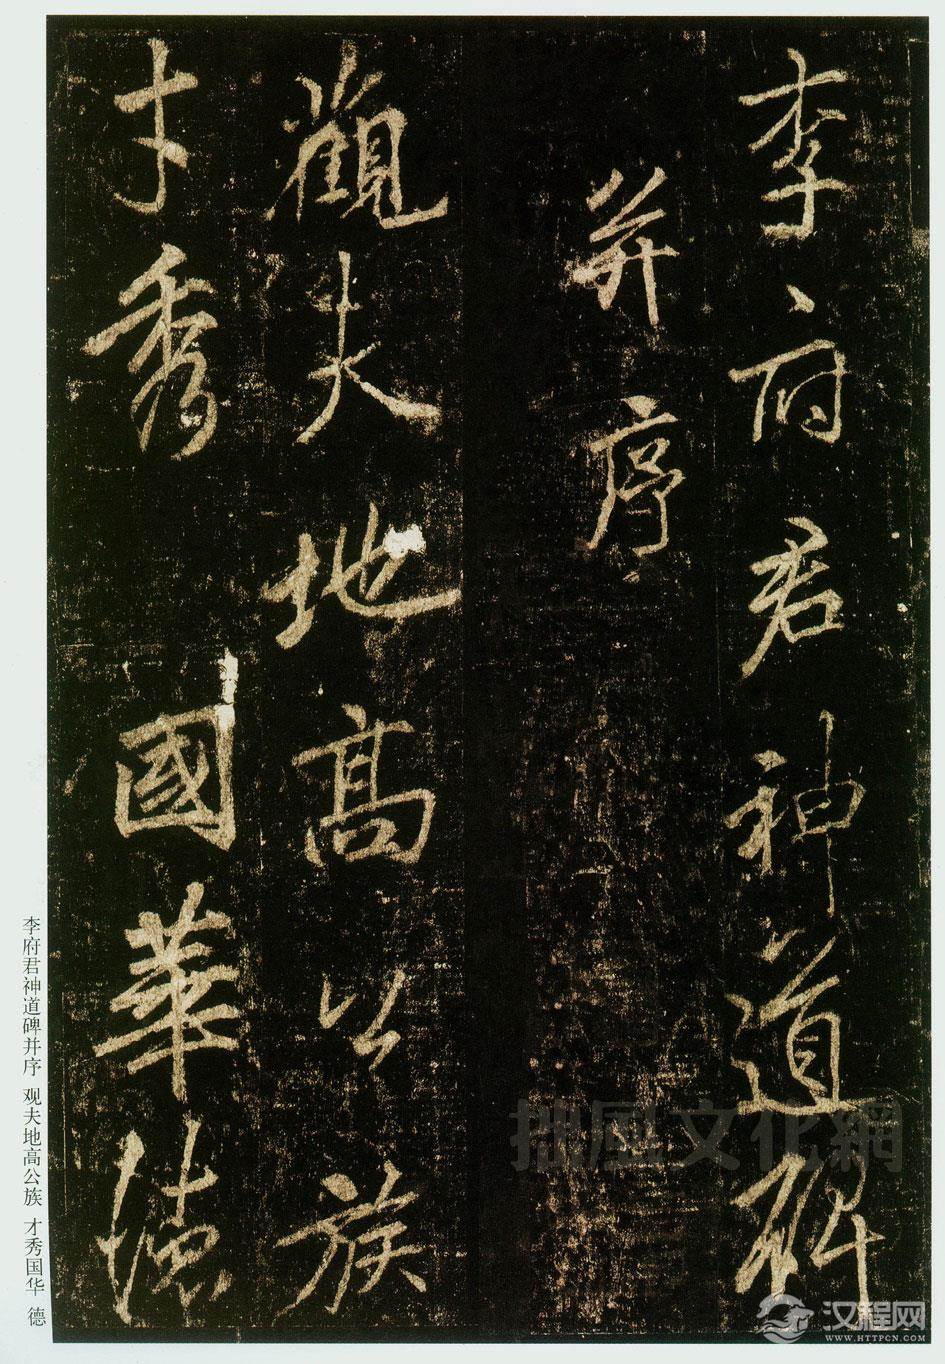 李府君神道碑
并序
觀夫地高公族
才秀國華德
李府君神道碑并序 观夫地高公族 才秀国华 德
拙風文化網
汉程网
WWW.HTTPCN.COM